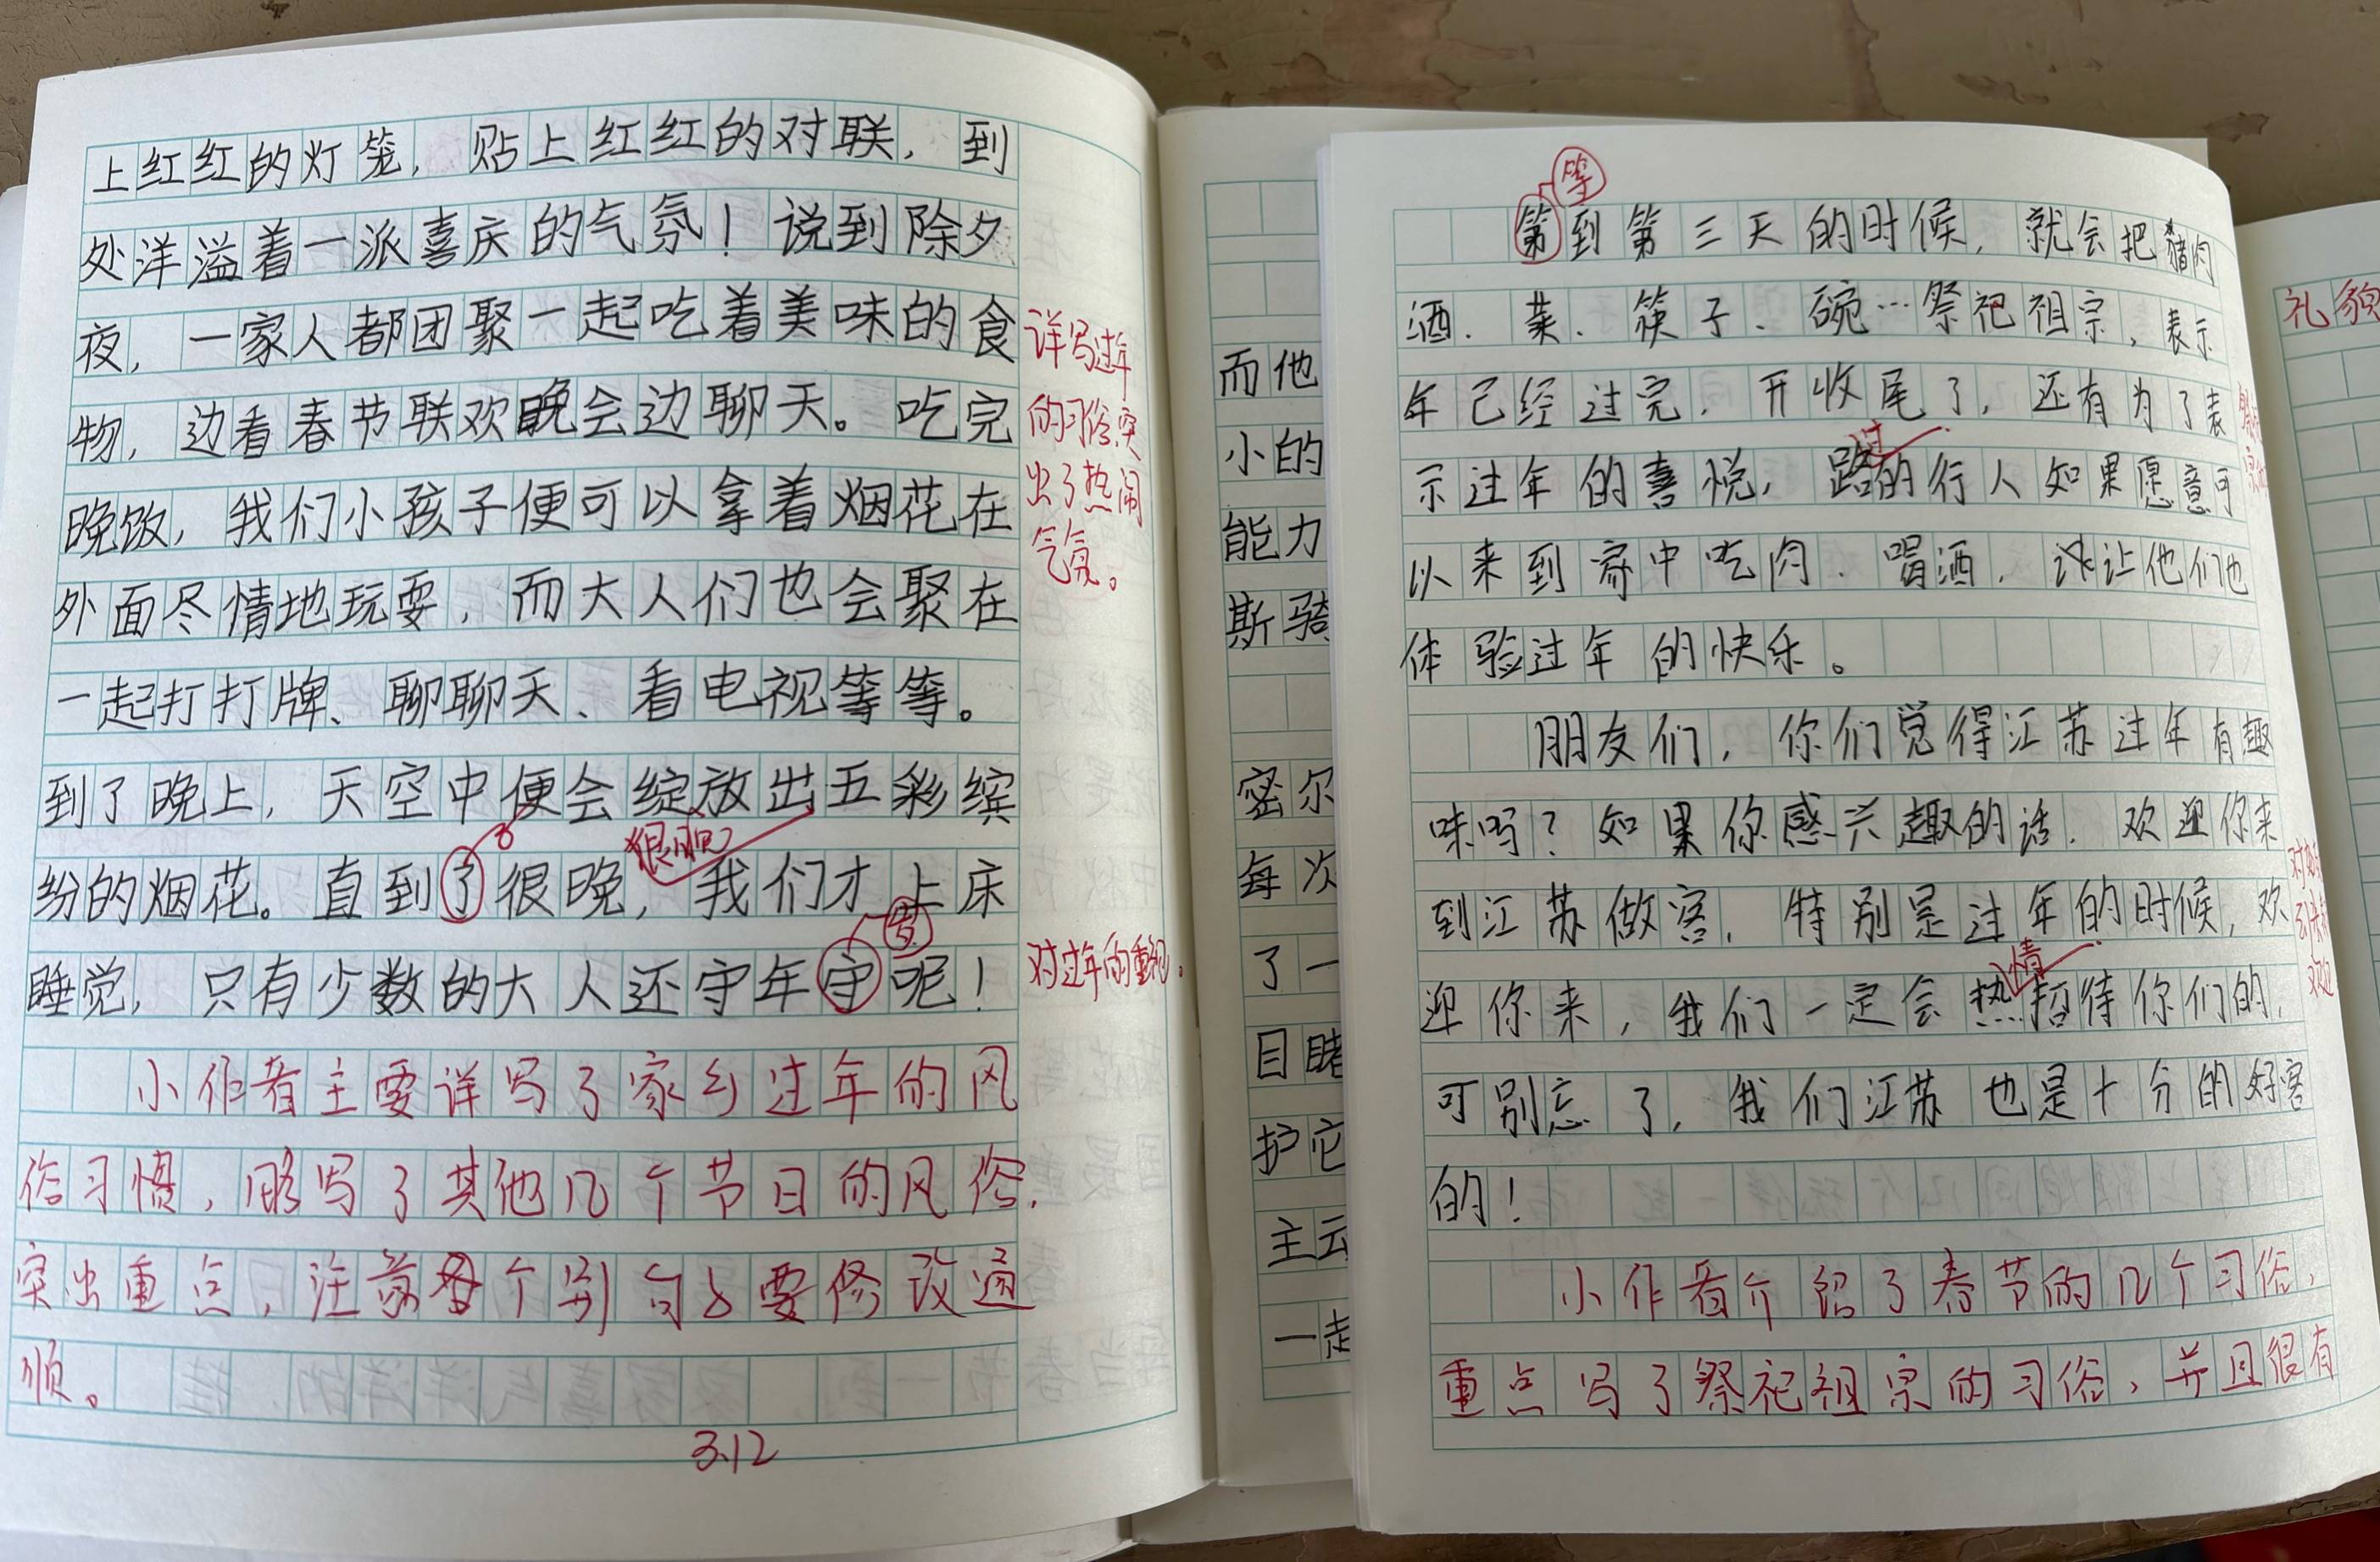 上红红的灯笼，贴上红红的对联，到
处洋溢着一派喜庆的气氛！说到除夕
夜，一家人都团聚一起吃着美味的食
物，边看春节联欢晚会边聊天。吃完
晚饭，我们小孩子便可以拿着烟花在
外面尽情地玩耍，而大人们也会聚在
一起打打牌、聊聊天、看电视等等。
到了晚上，天空中便会绽放出五彩缤
纷的烟花。直到了很晚，我们才上床
睡觉，只有少数的大人还守年守呢！
详写过年
的习俗，突
出了热闹
气氛。
很晚
对过年的重视。
小作者主要详写了家乡过年的风
俗习惯，略写了其他几个节日的风俗，
突出重点，注意个别句子要修改通
顺。
3.12
而他
小的
能力
斯骑
密尔
每次
了一
目睹
护它
主云
一起
等
第到第三天的时候，就会把猪肉
酒、菜、筷子、碗…祭祀祖宗，表示
年已经过完，开收尾了，还有为了表
示过年的喜悦，路的行人如果愿意可
过
以来到家中吃肉、喝酒，让他们也
体验过年的快乐。
朋友们，你们觉得江苏过年有趣
味吗？如果你感兴趣的话，欢迎你来
到江苏做客，特别是过年的时候，欢
迎你来，我们一定会热招待你们的，
情
可别忘了，我们江苏也是十分的好客
的！
小作者介绍了春节的几个习俗，
重点写了祭祀祖宗的习俗，并且很有
礼貌